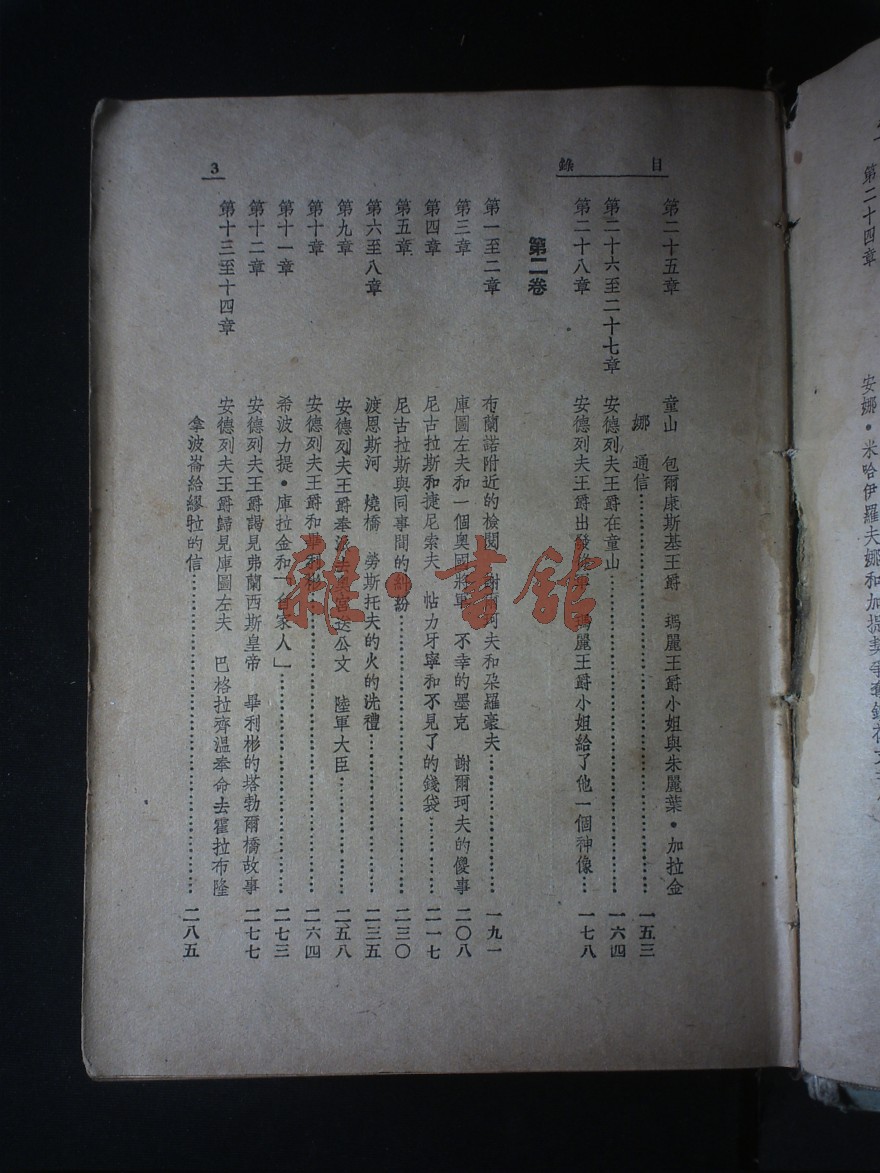 目錄
3
第二十五章 童山 包爾康斯基王爵 瑪麗王爵小姐與朱麗葉・加拉金
娜 通信……一五三
第二十六至二十七章 安德列夫王爵在童山……一六四
第二十八章 安德列夫王爵出發 瑪麗王爵小姐給了他一個神像……一七八
第二卷
第一至二章 布蘭諾附近的檢閱 謝爾珂夫和朶羅豪夫……一九一
第三章 庫圖左夫和一個奧國將軍 不幸的墨克 謝爾珂夫的傻事 二〇八
第四章 尼古拉斯和捷尼索夫 帖力牙寧和不見了的錢袋……二一七
第五章 尼古拉斯與同事間的糾紛……二三〇
第六至八章 渡恩斯河 燒橋 勞斯托夫的火的洗禮……二三五
第九章 安德列夫王爵奉派去奧宮送公文 陸軍大臣……二五八
第十章 安德列夫王爵和畢利彬……二六四
第十一章 希波力提・庫拉金和「自家人」……二七三
第十二章 安德列夫王爵謁見弗蘭西斯皇帝 畢利彬的塔勃爾橋故事 二七七
第十三至十四章 安德列夫王爵歸見庫圖左夫 巴格拉齊溫奉命去霍拉布隆
拿波崙給繆拉的信……二八五
第二十四章 安娜・米哈伊羅夫娜和加提契爭奪
雜・書館